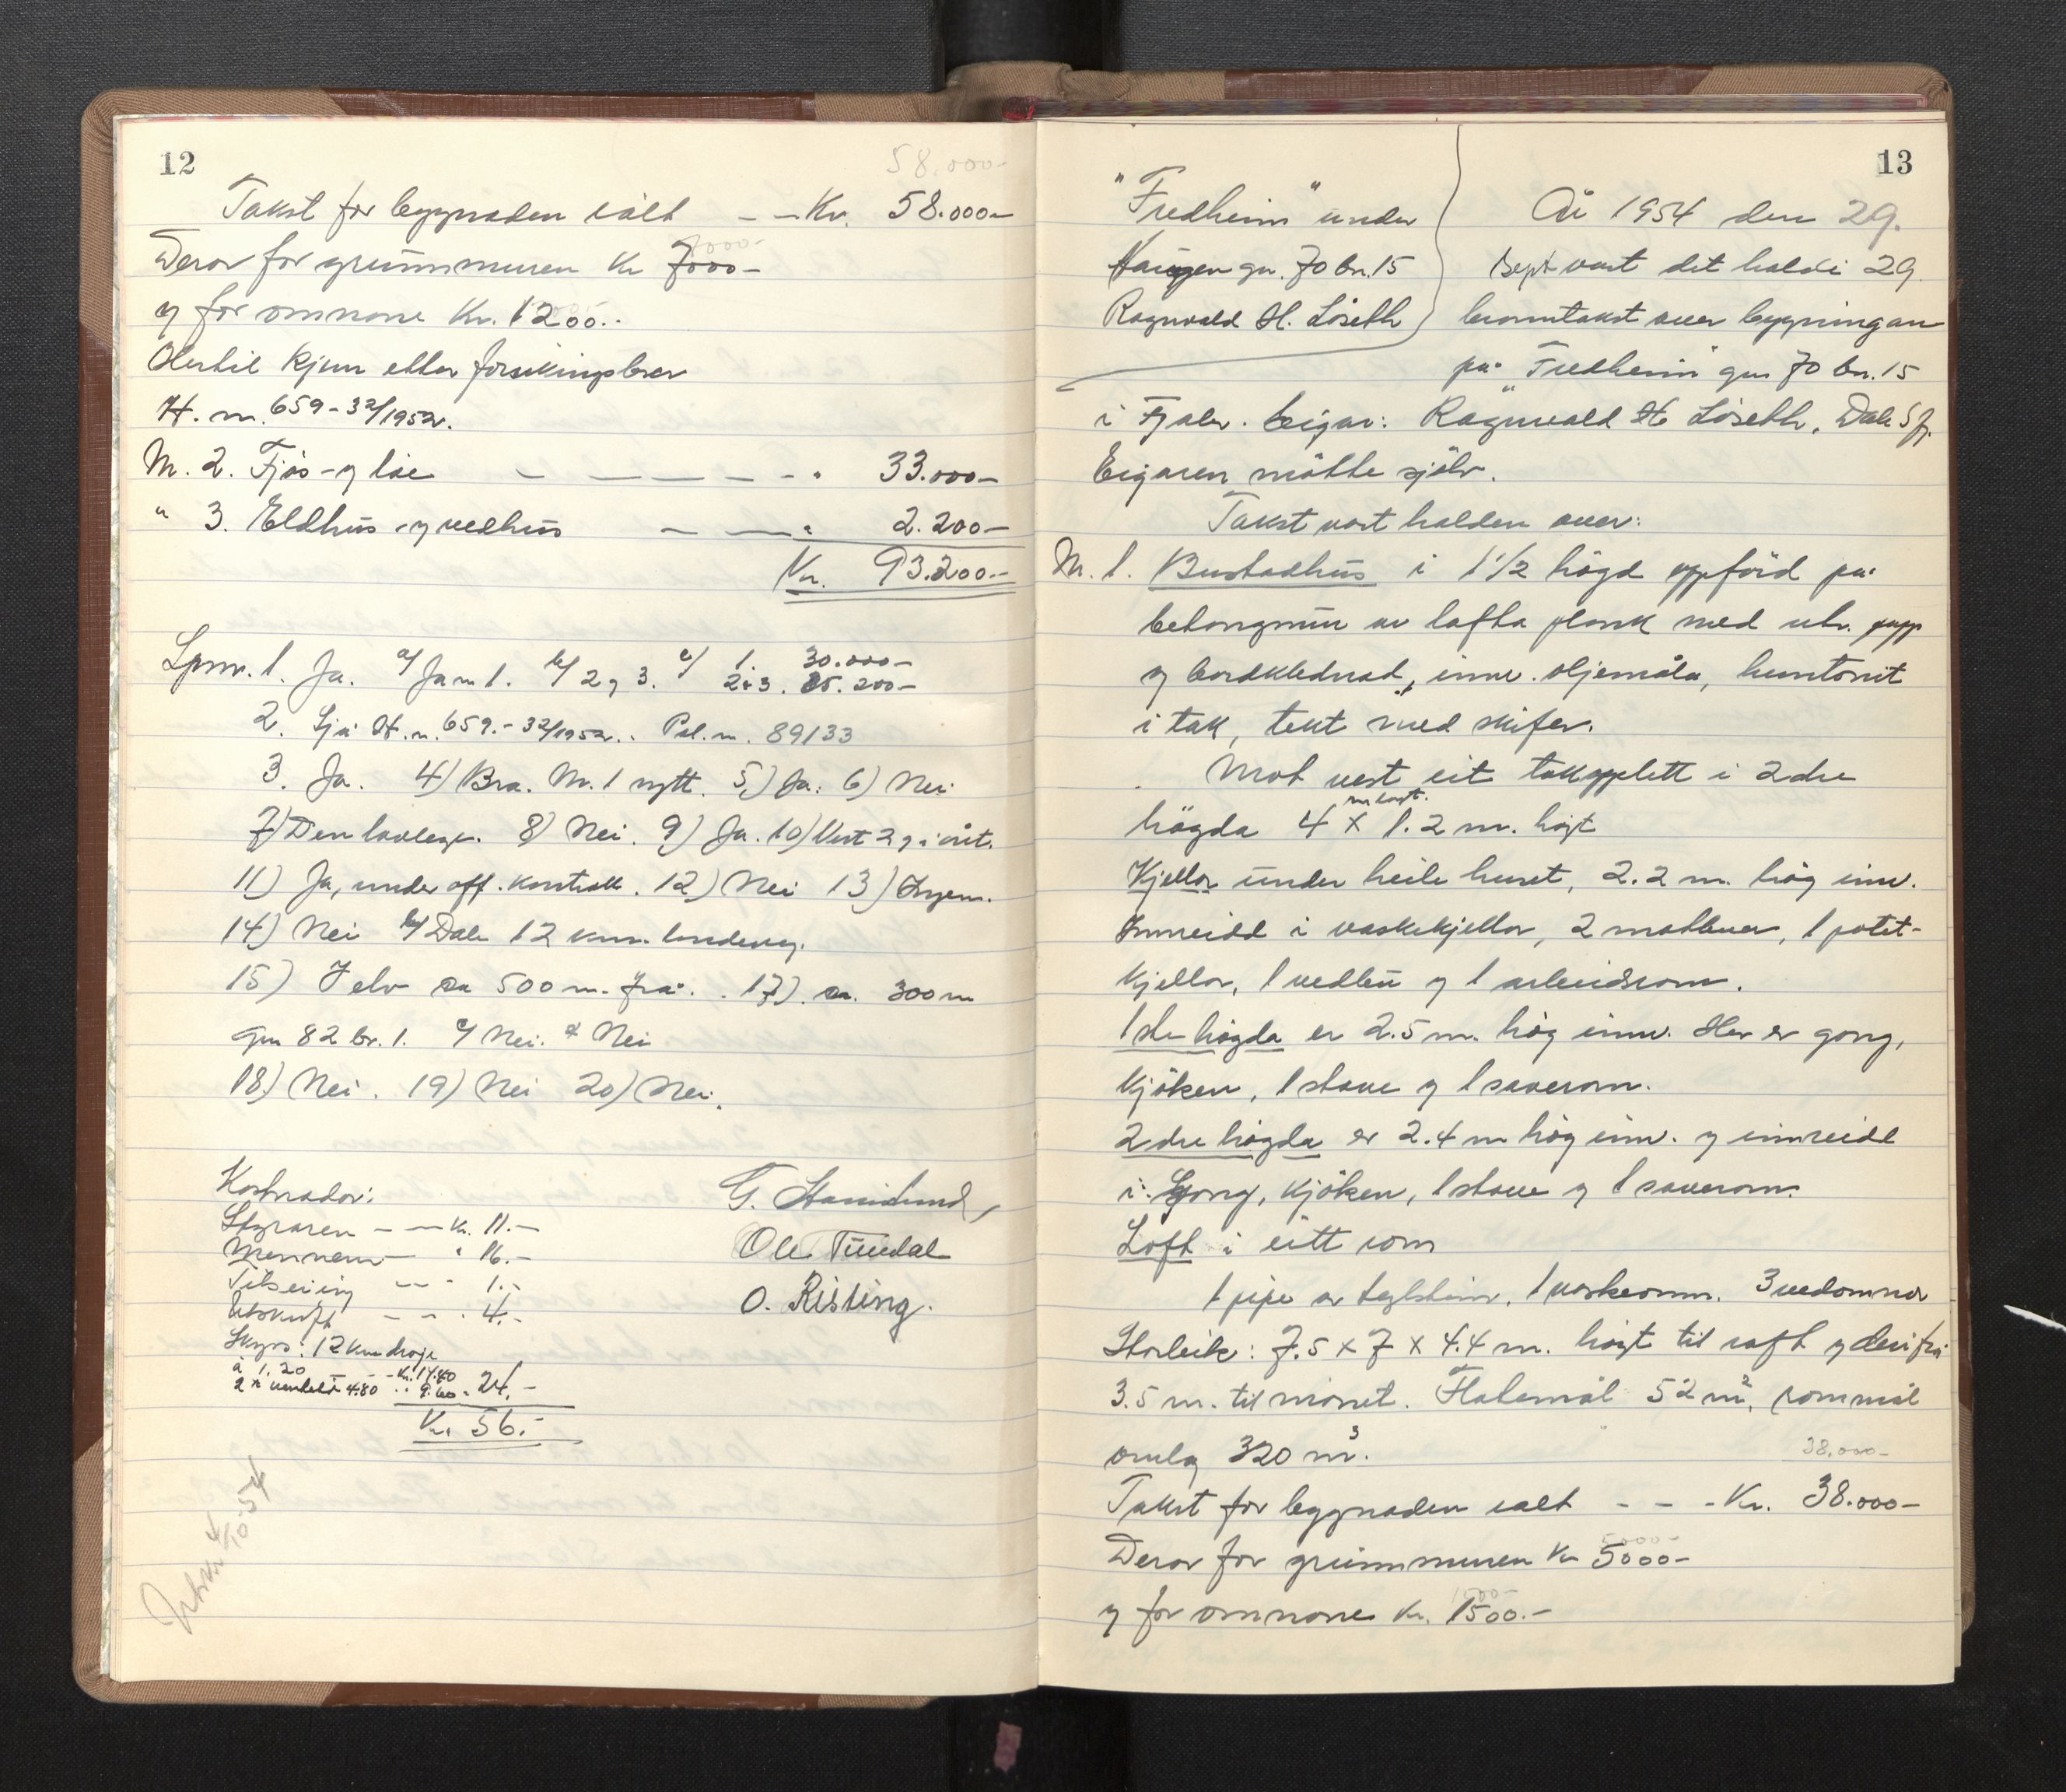 12
58.000-
Takst for bygnaden ialt - - Kr. 58.000-
Derav for grunnmuren Kr 7000-
7000-
og for omnane Kr. 1200.-
Hertil kjem etter forsikringsbrev
H. nr. 659-32/1952.
Nr. 2. Fjös- og löe - - - - - - " 33.000-
" 3. Eldhus og vedhus - - " 2.200-
Kr. 93.200.-
Spm. 1. Ja. a/ Ja nr 1. b/ 2 og 3. c/ 1. 30.000-
2+3. 35.200-
2. Sjå H. nr. 659.-32/1952.. Pol. nr. 89133
3. Ja. 4) Bra. Nr. 1 nytt. 5) Ja. 6) Nei
7) Den lovlege. 8) Nei. 9) Ja. 10) Vert 2 g. i året.
11) Ja, under off. kontroll. 12) Nei 13) Ingen.
14) Nei b/ Dale 12 km. landeveg.
15) I elv ca 500 m. frå. 17) ca. 300 m
gnr 82 br. 1. c/ Nei. d Nei
18) Nei. 19) Nei 20) Nei.
Kostnader:
Styraren - - Kr. 11.-
Mennene - " 16.-
Tilseiing - - - 1.-
Utskrift - - - 4.-
Skyss: 12 km drosje
à 1.20 - - Kr. 14.40
2 x 4.80 .. 9.60 - 24.-
Kr. 56.-
G. Stamlund
Ole Tuedal
O. Risting.
Utskr 4/10 54
13
"Fredheim" under
Haugen gnr. 70 bnr. 15
Ragnvald H. Löseth
År 1954 den 29.
sept vart det halde 29
branntakst over bygningane
på "Fredheim" gnr 70 bnr. 15
i Fjaler. Eigar: Ragnvald H Löseth, Dale Sfj.
Eigaren mötte sjölv.
Takst vart halden over:
Nr. 1. Bustadhus i 1 1/2 högd oppförd på
betongmur av lafta plank med utv. papp
og bordklednad, innv. oljemåla, huntonit
i tak, tekt med skifer.
Mot vest eit takopplett i 2dre
högda 4 x 1.2 m. högt
Kjellar under heile huset, 2.2 m. hög innv.
Innreidd i vaskekjellar, 2 matbuer, 1 potet-
kjellar, 1 vedbu og 1 arbeidsrom.
1ste högda er 2.5 m. hög innv. Her er gang,
kjöken, 1 stove og 1 soverom.
2dre högda er 2.4 m hög innv. og innreidd
i: Gang, kjöken, 1 stove og 1 soverom.
Loft i eitt rom
1 pipe av teglstein, 1 vaskeomn. 3 vedomnar
Storleik: 7.5 x 7 x 4.4 m. högt til raft og derifrå
3.5 m. til mönet. Flatemål 52 m², rommål
omlag 320 m³.
38.000-
Takst for bygnaden ialt - - - Kr. 38.000-
Derav for grunnmuren Kr 5000-
5000-
og for omnane Kr. 1500.-
1500-